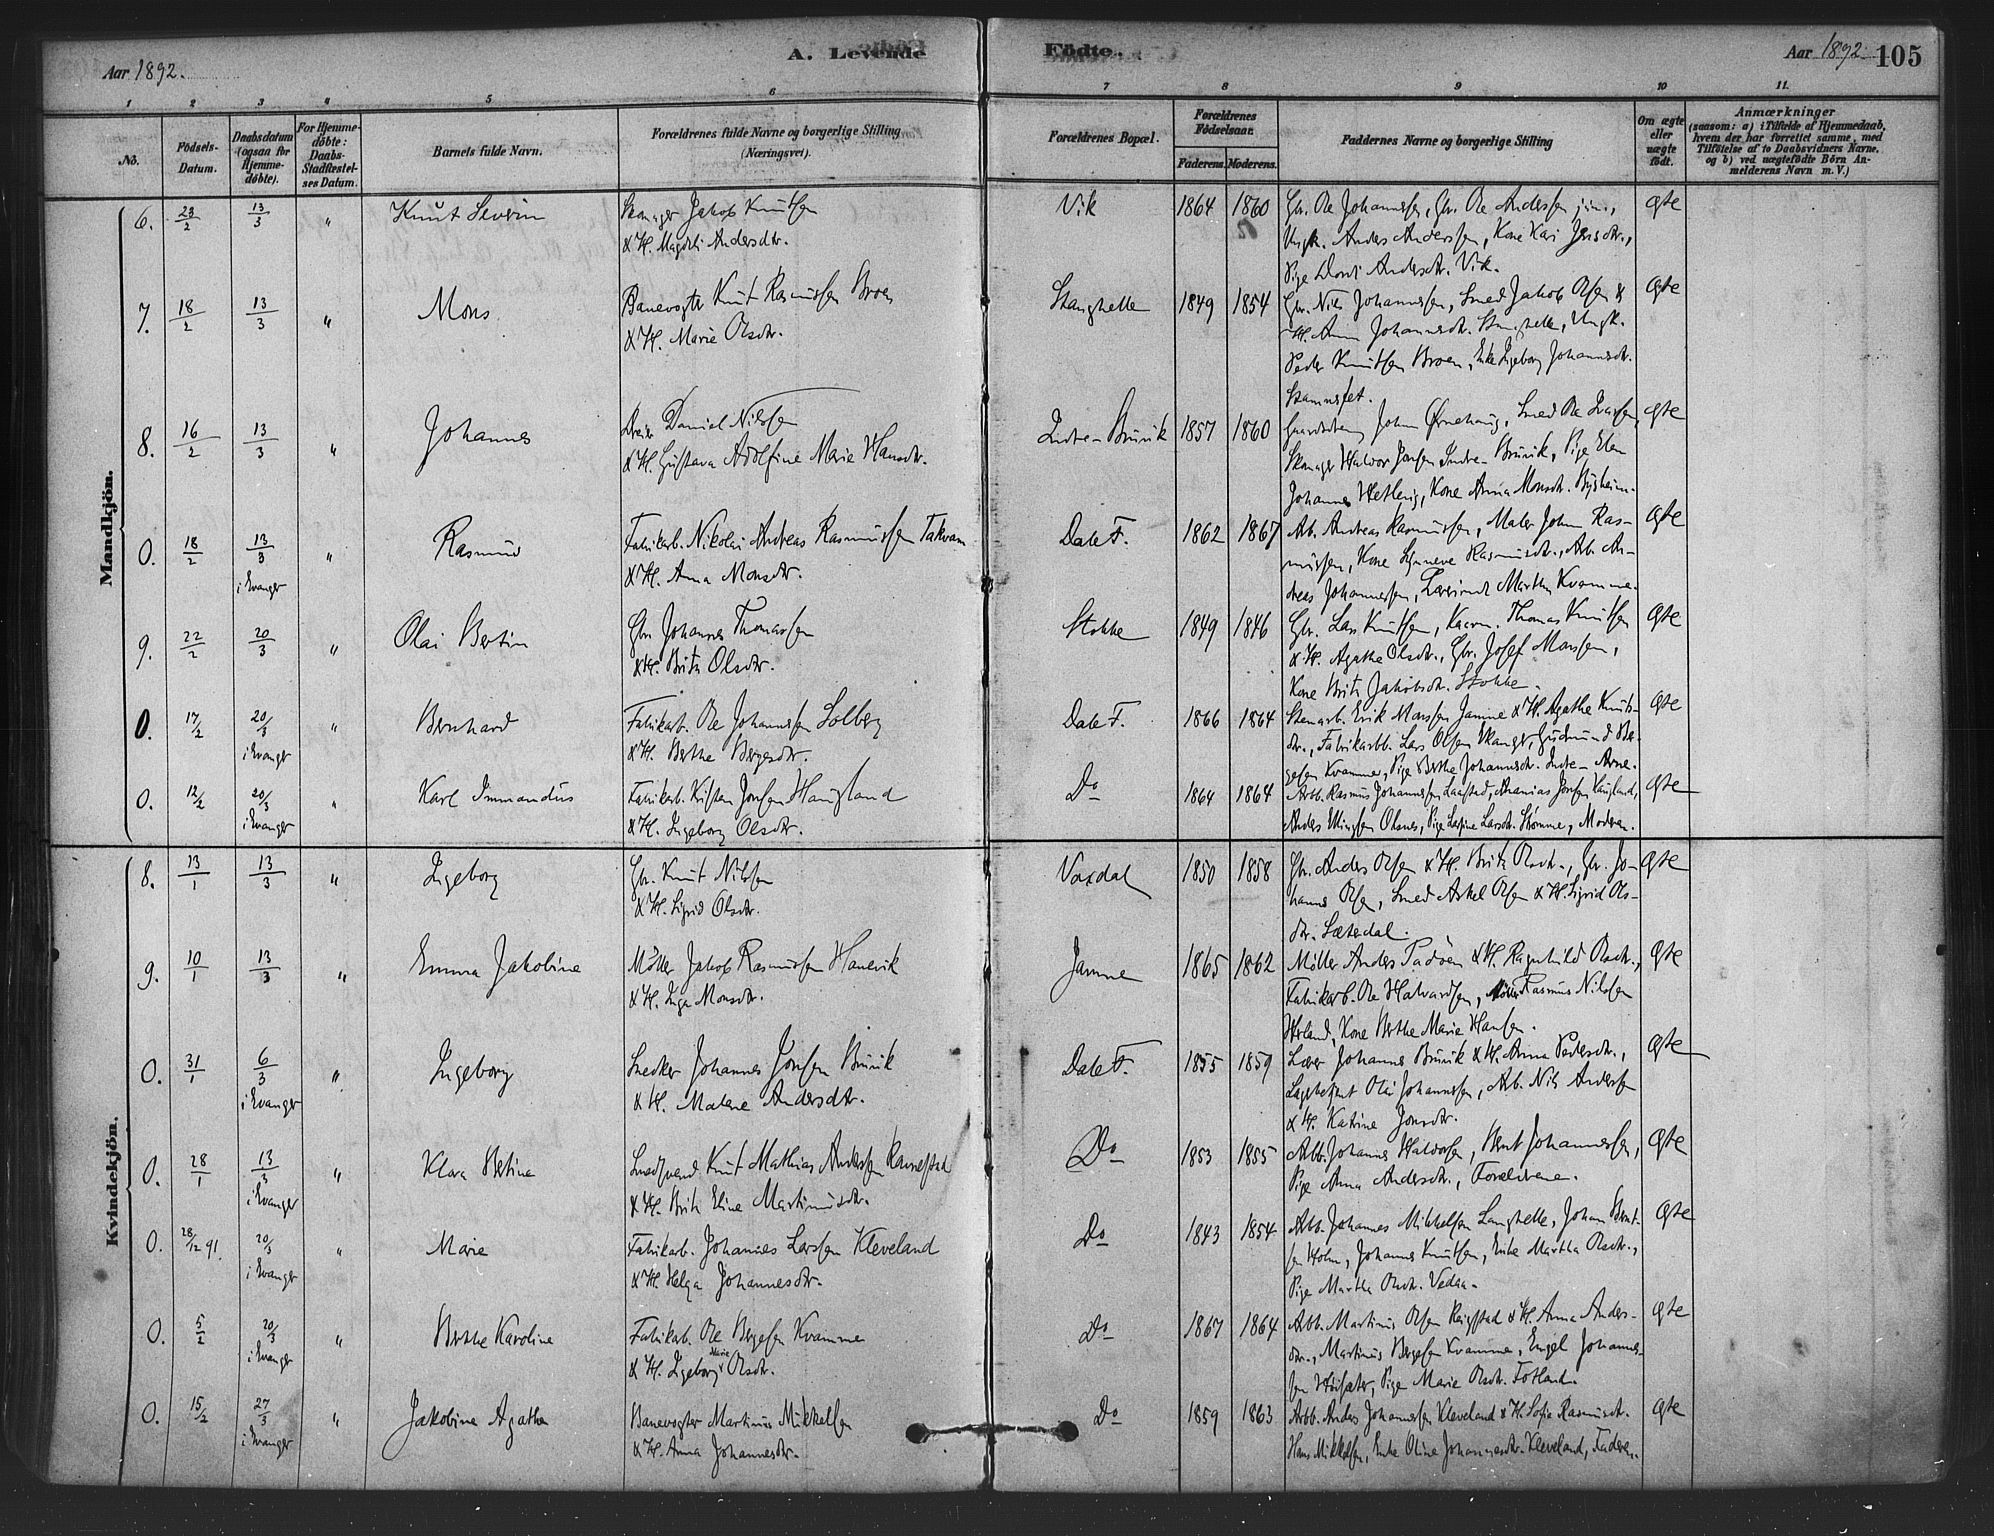 Aar 1892.
A. Levende
Födte.
Aar 1892. 105
1 2 3 4 5 6 7 8 9 10 11.
No.
Födsels-
Datum.
Daabsdatum
(ogsaa for
Hjemme-
döbte).
For Hjemme-
döbte:
Daabs-
Stadfæstel-
ses Datum.
Barnets fulde Navn.
Forældrenes fulde Navne og borgerlige Stilling
(Næringsvei).
Forældrenes Bopæl.
Forældrenes
Födselsaar.
Faderens. Moderens.
Faddernes Navne og borgerlige Stilling
Om ægte
eller
uægte
födt.
Anmærkninger
(saasom: a) i Tilfælde af Hjemmedaab,
hvem der har forrettet samme, med
Tilföielse af to Daabsvidners Navne,
og b) ved uægtefödte Börn An-
melderens Navn m. V.)
Mandkjön.
6. 23/2 13/3 " Knut Severin
Skomager Jakob Knutsen
& H. Magdli Andersdtr.
Vik 1864 1860
Gbr. Ole Johannessen, Gbr. Ole Anderssen jun.,
Ungk. Anders Anderssen, Kone Kari Jensdtr.,
Pige Dorti Andersdtr. Vik.
ægte
7. 18/2 13/3 " Mons
Banevogter Knut Rasmussen Broen
& H. Marie Olsdtr.
Stanghelle 1849 1854
Gbr. Nils Johannessen, Smed Jakob Olsen &
H. Anna Johannesdtr. Stanghelle, Ungk.
Peder Knutsen Broen, Enke Ingeborg Johannesdtr.
ægte
8. 16/2 13/3 " Johannes
Daniel Nilssen
& H. Gustava Adolfine Marie Hansdtr.
Indre-Bruvik 1857 1860
John Ørnehaug, Smed Ole Ivarsen,
Skomager Halvor Jonsen Indre-Bruvik, Pige Elen
Johannes Hetlevig, Kone Anna Monsdtr. Bysheim.
ægte
0. 18/2 13/3 i Evanger " Rasmus
Fabrikarb. Nikolai Andreas Rasmussen Takvam
& H. Anna Monsdtr.
Dale F. 1862 1867
Arb. Andreas Rasmussen, Maler John Ras-
mussen, Kone Synneve Rasmusdtr., Arb. An-
dreas Johannessen, Martha Kvamme.
ægte
9. 22/2 20/3 " Olai Bertin
Gbr. Johannes Thomassen
& H. Brita Olsdtr.
Stokke 1849 1846
Gbr. Lars Knutsen, Kaarm. Thomas Knutsen
& H. Agathe Olsdtr., Gbr. Josef Monsen,
Kone Brita Jakobsdtr. Stokke.
ægte
0. 17/2 20/3 i Evanger " Bernhard
Fabrikarb. Ole Johannessen Solberg
& H. Berthe Bergesdtr.
Dale F. 1866 1864
Stenarb. Erik Monssen Jamne & H. Agathe Knuts-
dtr., Fabrikarbb. Lars Olsen Skanger, Gudmund Ber-
gesen Kvamme, Pige Berthe Johannesdtr. Indre-Arne.
ægte
0. 12/2 20/3 i Evanger " Karl Immandus
Fabrikarb. Kristen Jonsen Haugland
& H. Ingeborg Olsdtr.
Do 1864 1864
Arbb. Rasmus Johannessen Laastad, Ananias Jonsen Haugland,
Anders Ellingsen Olsnes, Pige Larsine Larsdtr. Strømme, Moderen.
ægte
Kvindekjön.
8. 13/1 13/3 " Ingeborg
Gbr. Knut Nilssen
& H. Sigrid Olsdtr.
Vaxdal 1850 1858
Gbr. Anders Olsen & H. Brita Olsdtr., Gbr. Jo-
hannes Olsen, Smed Askel Olsen & H. Sigrid Ols-
dtr. Sætredal.
ægte
9. 10/1 13/3 " Emma Jakobine
Møller Jakob Rasmussen Hanevik
& H. Inga Monsdtr.
Jamne 1865 1862
Møller Anders Padøen & H. Ragnhild Olsdtr.,
Fabrikarb. Ole Halvardsen, Møller Rasmus Nilssen
Herland, Kone Berthe Marie Hansen.
ægte
0. 31/1 6/3 i Evanger " Ingeborg
Snedker Johannes Jonsen Bruvik
& H. Malene Andersdtr.
Dale F. 1855 1859
Lærer Johannes Bruvik & H. Anna Pedersdtr.,
Lagsbetjent Olai Johannessen, Arb. Nils Andersen
& H. Katrine Jonsdtr.
ægte
0. 28/1 13/3 i Evanger " Klara Bertina
Smedsvend Knut Mathias Andersen Ravnestad
& H. Brita Eline Martinusdtr.
Do 1853 1855
Arbb. Johannes Haldorsen, Bernt Johannessen,
Pige Anna Andersdtr., Forældrene.
ægte
0. 28/12 91. 20/3 i Evanger " Marie
Fabrikarb. Johannes Larssen Kleveland
& H. Helga Johannesdtr.
Do 1843 1854
Arbb. Johannes Mikkelsen Langhelle, Johan Bernt-
sen Holm, Johannes Knutsen, Enke Martha Olsdtr.,
Pige Martha Olsdtr. Vedaa.
ægte
0. 5/2 20/3 i Evanger " Berthe Karoline
Fabrikarb. Ole Bergesen Kvamme
& H. Ingeborg Marie Olsdtr.
Do 1867 1864
Arbb. Martinus Olsen Raugstad & H. Anna Anders-
dtr., Martinus Bergesen Kvamme, Engel Johannes-
sen Husæter, Pige Marie Olsdtr. Fotland.
ægte
0. 15/2 27/3 i Evanger " Jakobine Agathe
Banevogter Martinus Mikkelsen
& H. Anna Johannesdtr.
Do 1859 1863
Arbb. Anders Johannessen Kleveland & H. Sofie Rasmusdtr.
Hans Mikkelsen, Enke Oline Johannesdtr. Kleveland, Faderen.
ægte